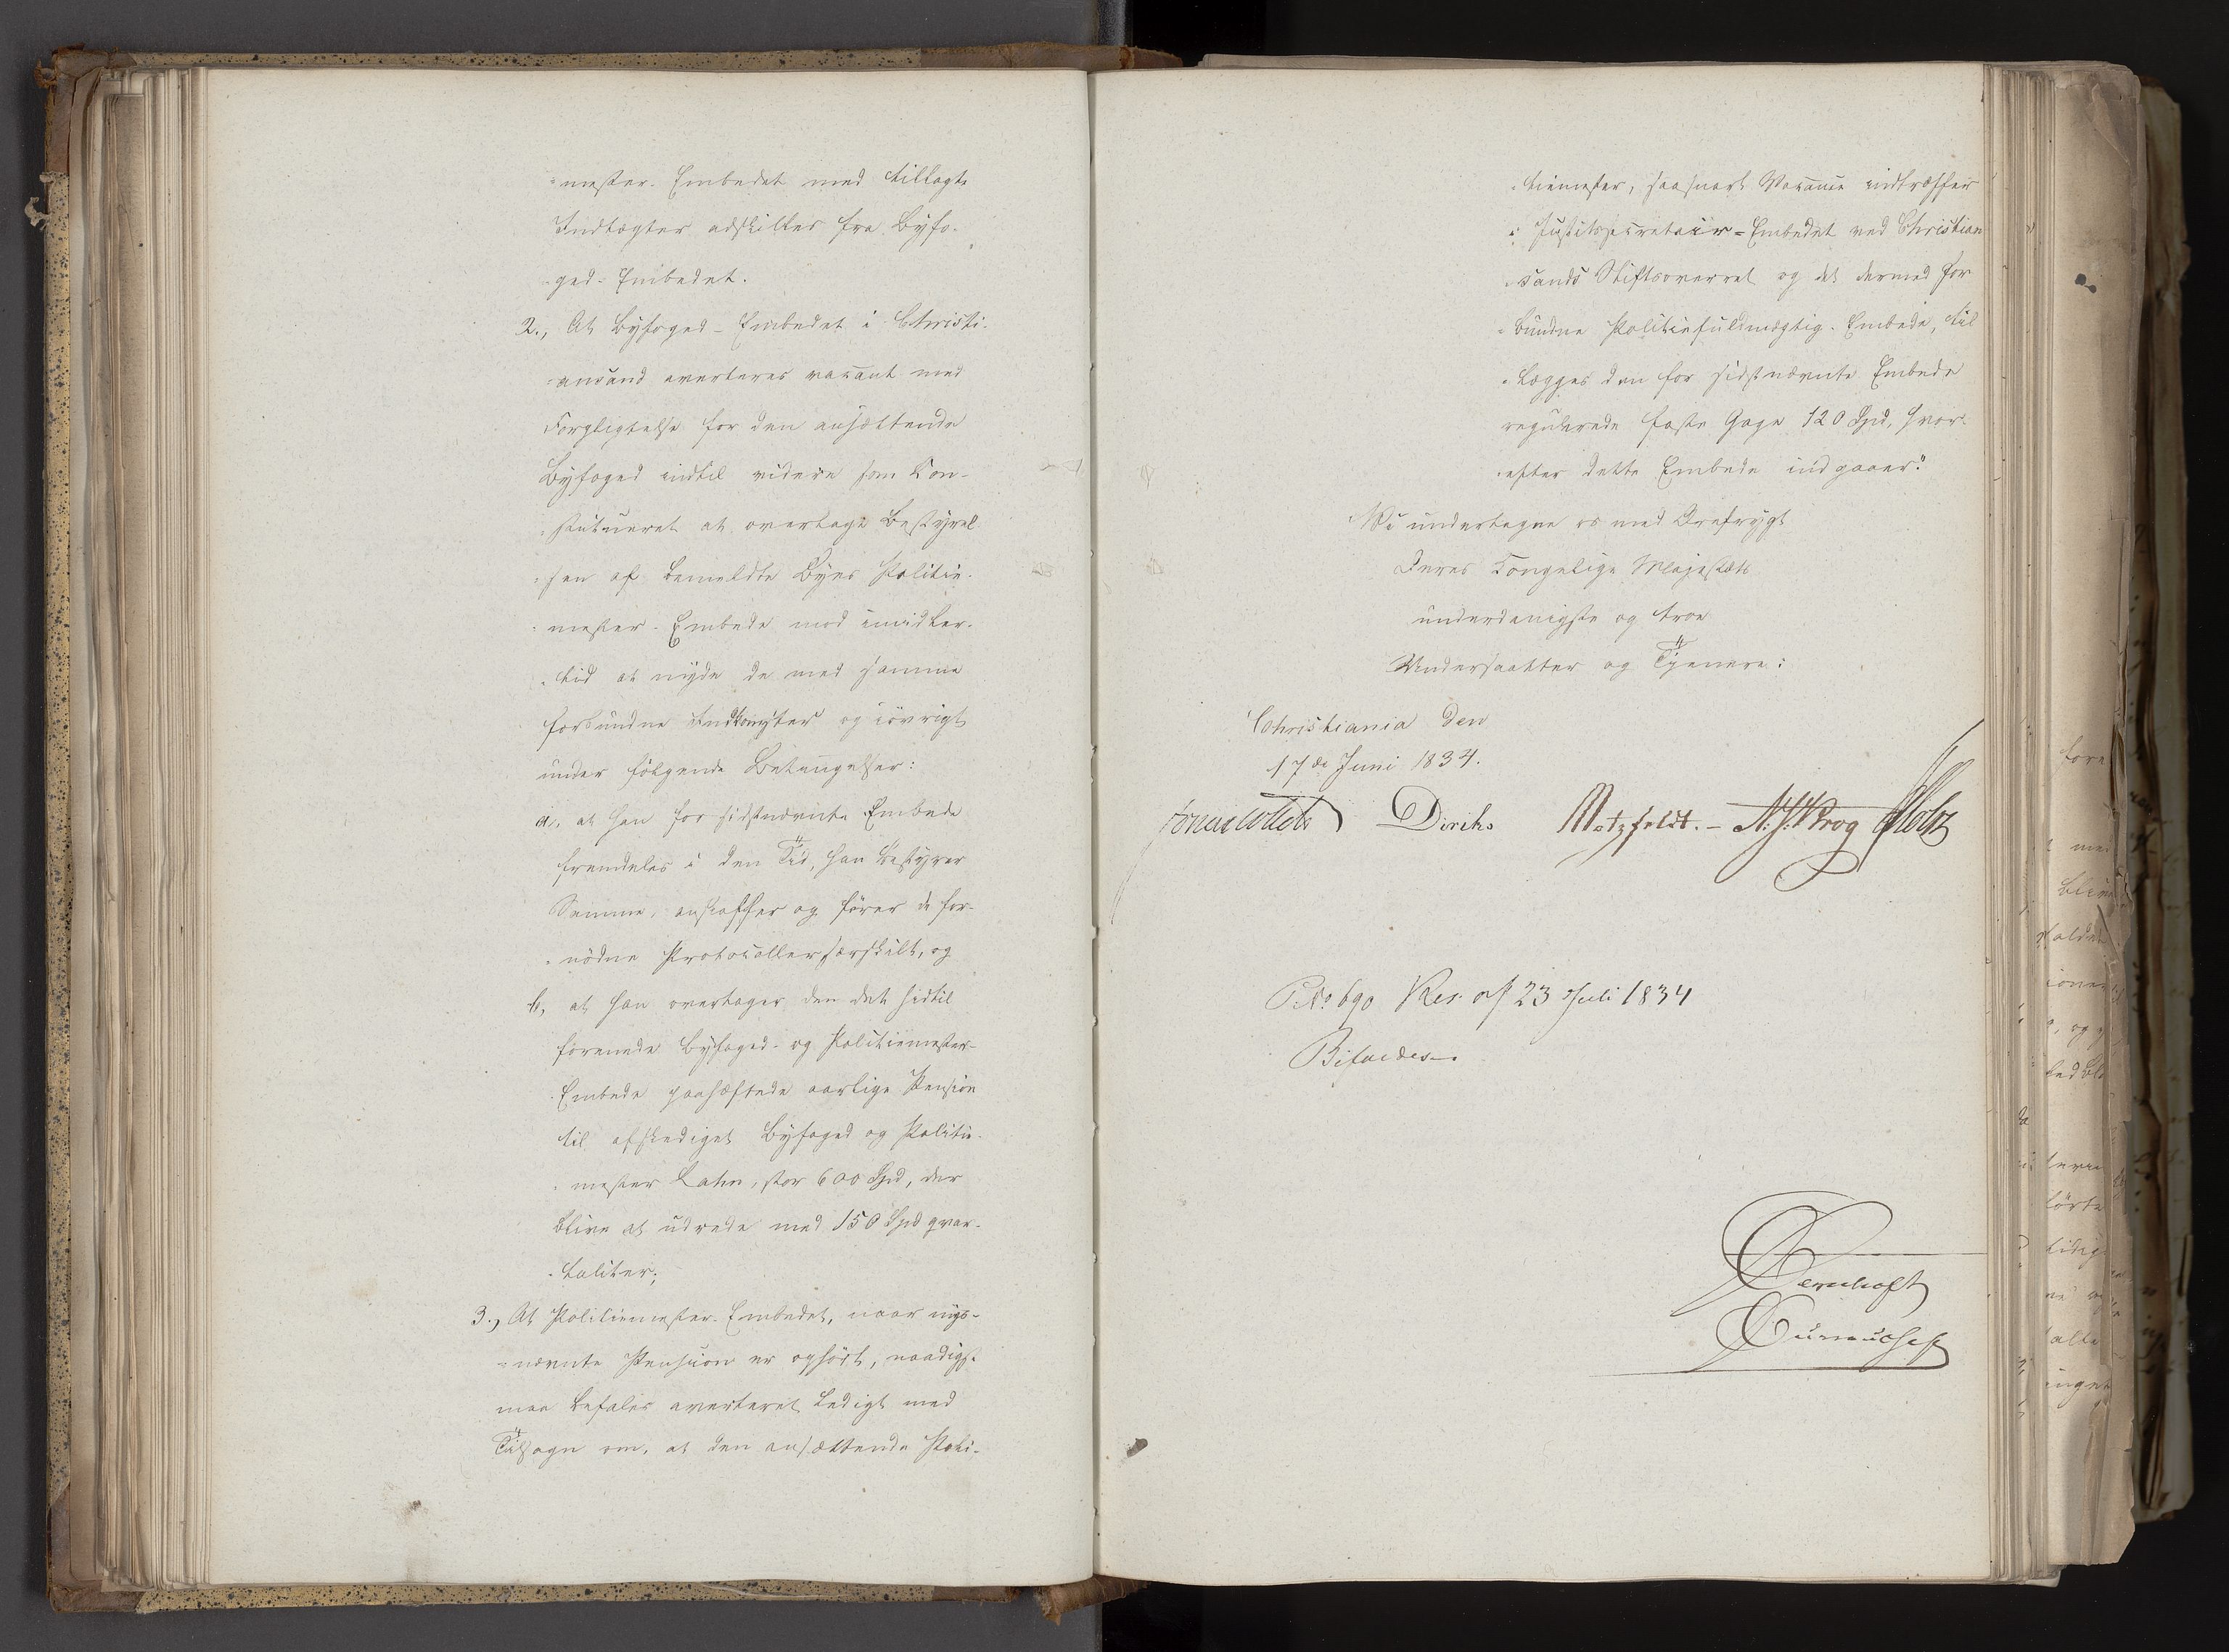 -mester-Embedet med tillagte
Indtægter adskilles fra Byfo-
-ged-Embedet.
2., At Byfoged-Embedet i Christi-
-ansand averteres vacant med
Forpligtelse for den ansættende
Byfoged indtil videre som Con-
-stitueret at overtage Bestyrel-
-sen af bemeldte Byes Politie-
-mester-Embede mod imidler-
-tid at nyde de med samme
forbundne Indkomster og iøvrigt
under følgende Betingelser:
a, at han for sidstnævnte Embede
fremdeles i den Tid, han bestyrer
Samme, anskaffer og fører de for-
-nødne Protocoller særskilt, og
b, at han overtager den det hidtil
forenede Byfoged- og Politiemester-
Embede paahæftede aarlige Pension
til afskediget Byfoged og Politie-
-mester Lahn, stor 600 Spd, der
blive at udrede med 150 Spd qvar-
-taliter;
3., At Politiemester-Embedet, naar nys-
-nævnte Pension er ophørt, naadigst
maa befales averteret ledigt med
Tilsagn om, at den ansættende Poli-
-tiemester, saasnart Vacance indtræffer
i Justitssecretair-Embedet ved Christian
-sands Stiftsoverret og det dermed for
-bundne Politiefuldmægtig-Embede, til
-lægges den for sidstnævnte Embede
regulerede faste Gage 120 Spd, hvor-
-efter dette Embede indgaaer."
Vi undertegne os med Ærefrygt
Deres Kongelige Majestæts
underdanigste og troe
Undersaatter og Tjenere:
Christiania den
17de Juni 1834.
Jonas Collett Diriks Motzfeldt.- N. J. Krog Holst
P. No 690 Res. af 23 Juli 1834
Bifaldes.